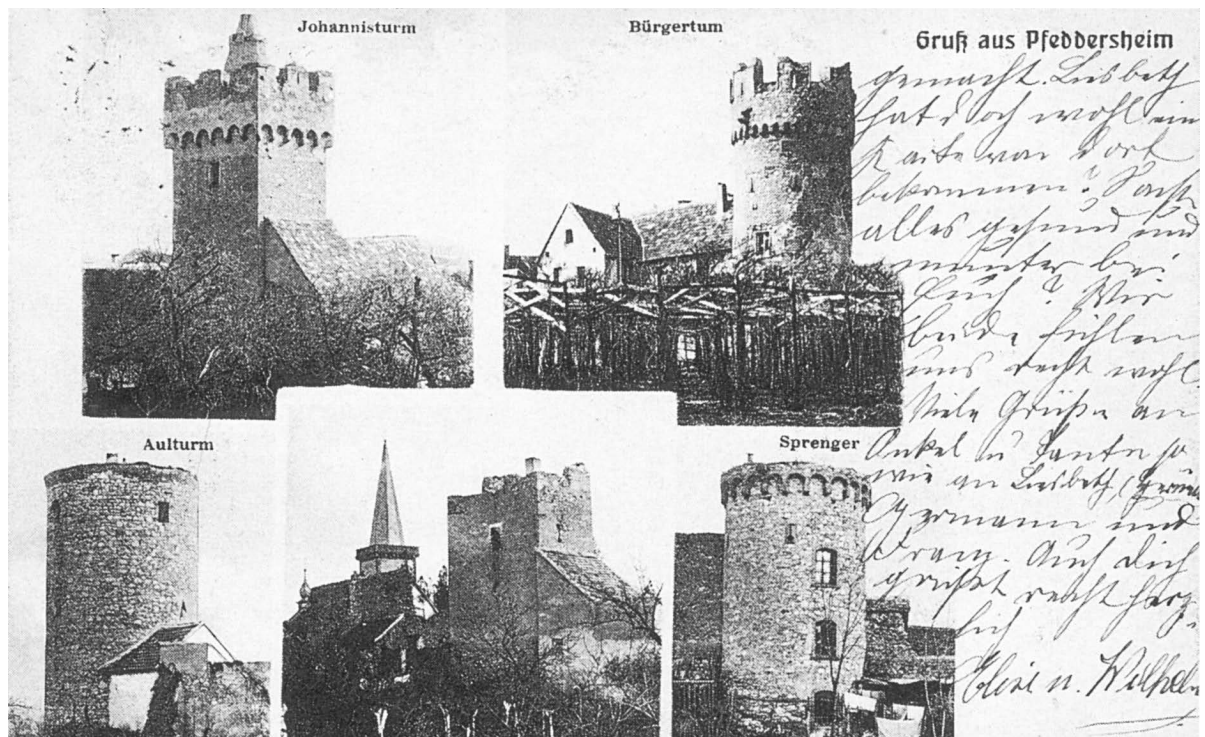 Johannisturm
Bürgertum
Gruß aus Pfeddersheim
Aulturm
Sprenger
gemacht. Liesbeth
hat doch wohl ein
Karte von dort
bekommen?
alles gesund und
munter bei
Euch? Wir
beide fühlen
uns recht wohl.
Viele Grüße an
Onkel u Tante so
wie an Liesbeth,
Hermann und
Franz. Auch dich
grüßt recht herz-
lich
Elise u. Wilhelm